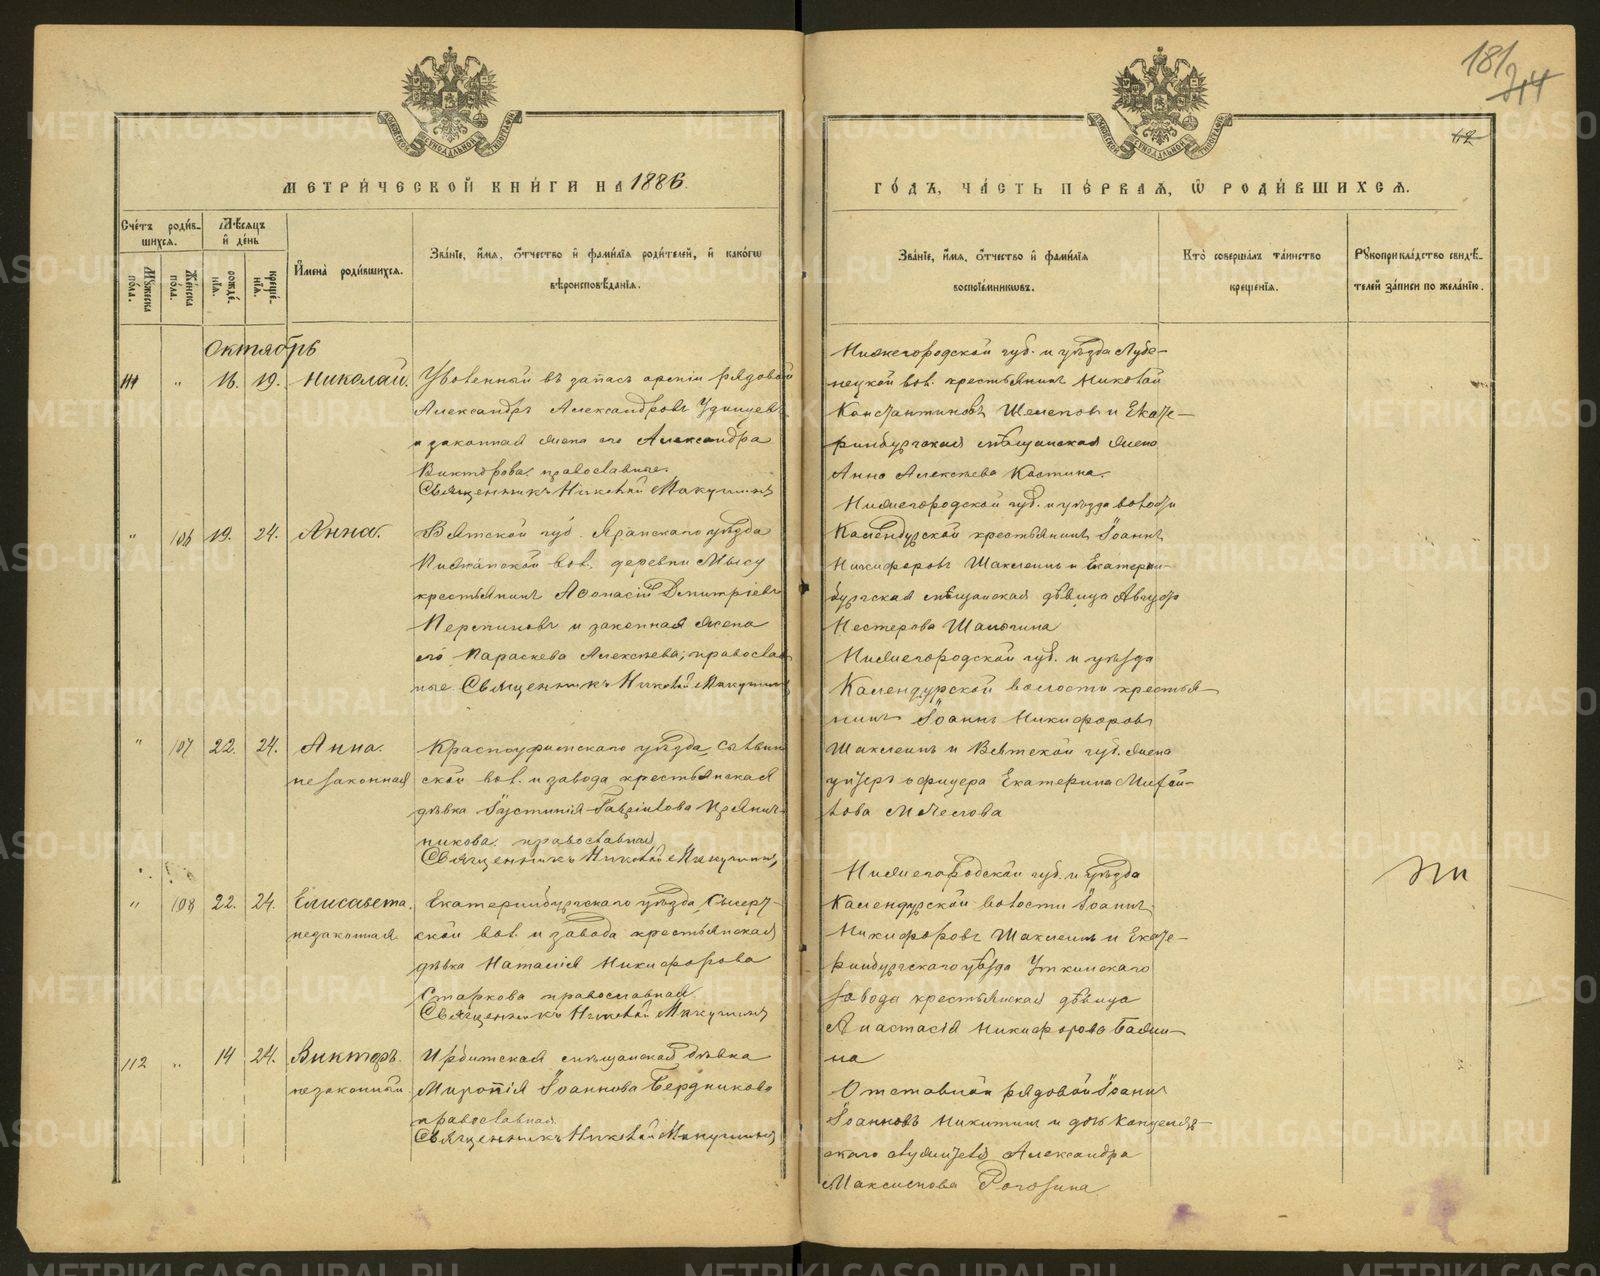 181
42
МЕТРИЧЕСКОЙ КНИГИ НА 1886
ГОДЪ, ЧАСТЬ ПЕРВАЯ, Ѡ РОДИВШИХСЯ.
Счетъ родившихся.
Мужеска пола.
Женска пола.
Мѣсяцъ и день
рожденія.
крещенія.
Имена родившихся.
Званіе, имя, отчество и фамилія родителей, и какого
вѣроисповѣданія.
Званіе, имя, отчество и фамилія
воспріемниковъ.
Кто совершалъ таинство
крещенія.
Рукоприкладство свидѣ-
телей записи по желанію.
Октябрь
111 " 16. 19. Николай.
Уволенный въ запасъ арміи рядовой
Александръ Александровъ
и законная жена его Александра
Викторова. православные.
Священникъ Николай Макушинъ
Нижегородской губ. и уѣзда
вол. крестьянинъ Николай
Константиновъ Шелеповъ и Екате-
ринбургская мѣщанская жена
Анна Алексѣева Костина.
" 106 19. 24. Анна.
Вятской губ. Яранскаго уѣзда
Пижанской вол. деревни Мысу
крестьянинъ Афонасій Дмитріевъ
и законная жена
его Параскева Алексѣева; православ
ные. Священникъ Николай Макушинъ
Нижегородской губ. и уѣзда волости
крестьянинъ Іоаннъ
Никифоровъ и Екатерин-
бургская мѣщанская дѣвица Августа
Нестерова
" 107 22. 24. Анна.
незаконная
Красноуфимскаго уѣзда, Сылвин
ской вол. и завода крестьянская
дѣвка Іустинія Гавріилова Прянич-
никова. православная
Священникъ Николай Макушинъ
Нижегородской губ. и уѣзда
волости крестья-
нинъ Іоаннъ Никифоровъ
и Вятской губ. жена
унтеръ офицера Екатерина Михай-
лова
" 108 22. 24. Елисавета.
незаконная
Екатеринбургскаго уѣзда, Сысерт-
ской вол. и завода крестьянская
дѣвка Наталія Никифорова
Старкова православная
Священникъ Николай Макушинъ
Нижегородской губ. и уѣзда
волости Іоаннъ
Никифоровъ и Екате-
ринбургскаго уѣзда Уткинскаго
завода крестьянская дѣвица
Анастасія Никифорова
на
112 " 14 24. Викторъ.
незаконный
Ирбитская мѣщанская дѣвка
Миропія Іоаннова Бердникова
православная.
Священникъ Николай Макушинъ
Отставной рядовой Іоаннъ
Іоанновъ Никитинъ и дочь канцеляр-
скаго служителя Александра
Максимова Рогозина
METRIKI.GASO-URAL.RU